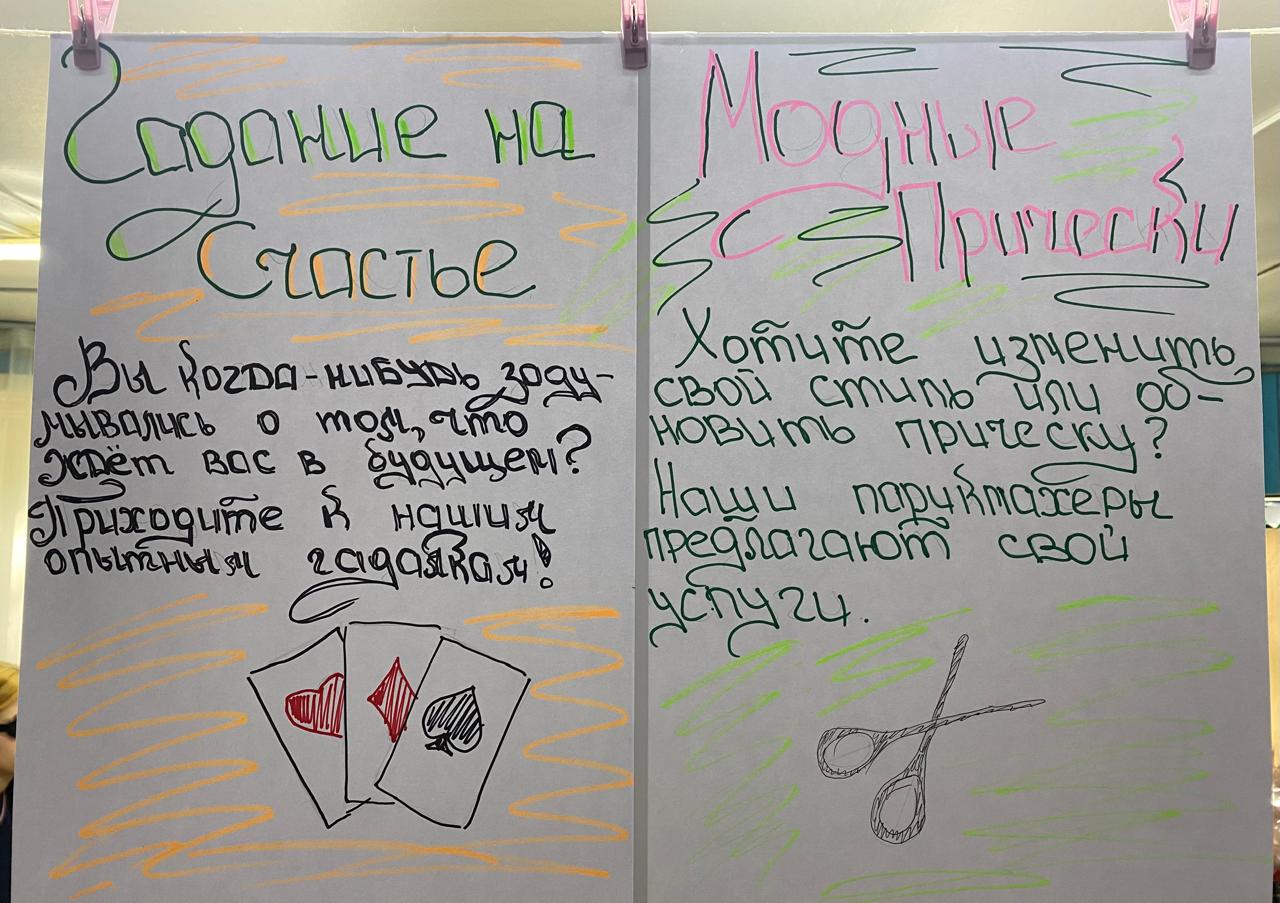 Гадание на
Счастье
Вы когда-нибудь заду-
мывались о том, что
ждёт вас в будущем?
Приходите к нашим
опытным гадалкам!
Модные
Прически
Хотите изменить
свой стиль или об-
новить прическу?
Наши парикмахеры
предлагают свой
услуги.